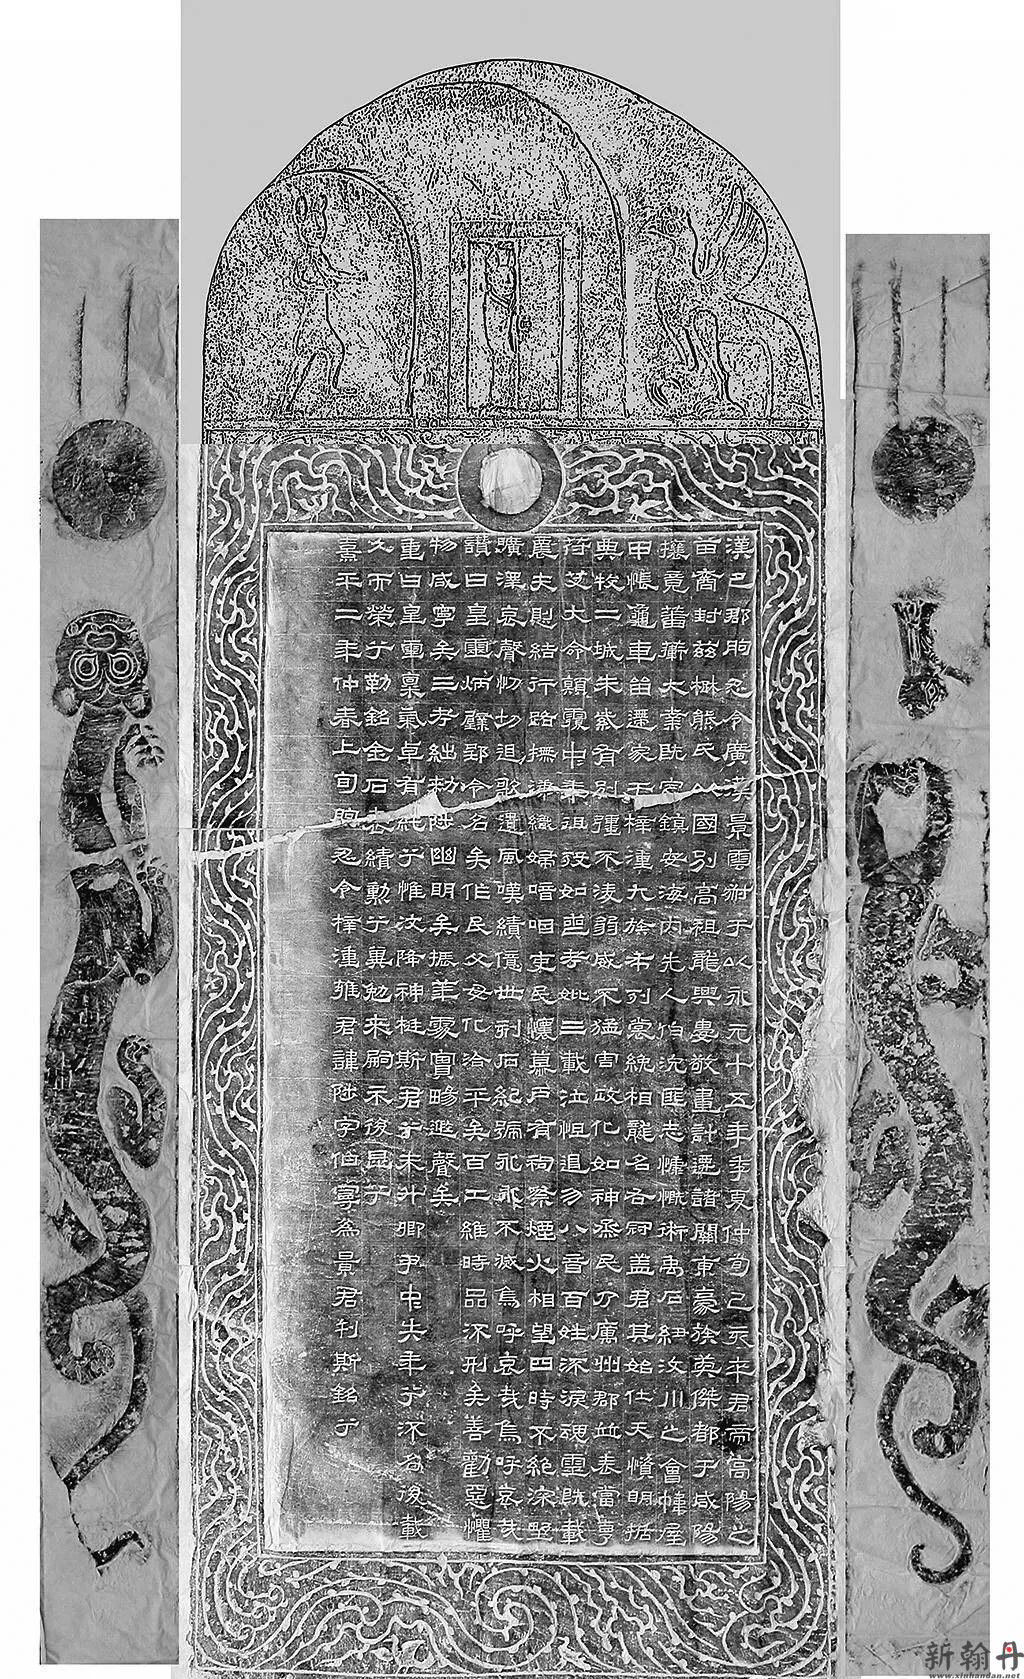 漢巴郡朐忍令廣漢景雲叔于以永元十五年季夏仲旬己亥卒君帝高陽之
苗裔封兹楚熊氏以國別高祖龍興婁敬畫計遷諸關東豪族英傑都于咸陽
攘竟蕃衛大業既定鎮安海內先人伯沇匪志慷慨術禹石紐汶川之會幃屋
甲帳龜車留遷家于梓潼九族布列裳絻相龍名右冠盖君其始仕天資明括
典牧二城朱紫有別彊不凌弱威不猛害政化如神烝民乃厲州郡並表當亨
苻艾大命顛覆中年殂歿如喪考妣三載泣怛遏勿八音百姓流淚魂靈既載
農夫惻結行路撫涕織婦喑咽吏民懷慕戶有祠祭煙火相望四時不絕深野
曠澤哀聲忉切追歌遺風嘆績億世刻石紀號永永不滅烏呼哀哉烏呼哀哉
讚曰皇靈炳璧郢令名矣作民父母化洽平矣百工維時品流刑矣善勸惡懼
物咸寧矣三考絀勑陟幽明矣振華處實暘遐聲矣
重曰皇靈稟氣卓有純兮惟汶降神梃斯君兮未升卿尹中失年兮流名後載
久而榮兮勒銘金石表績勳兮冀勉來嗣示後昆兮
熹平二年仲春上旬朐忍令梓潼雍君諱陟字伯寧為景君刊斯銘兮
新翰丹
www.xinhandan.net